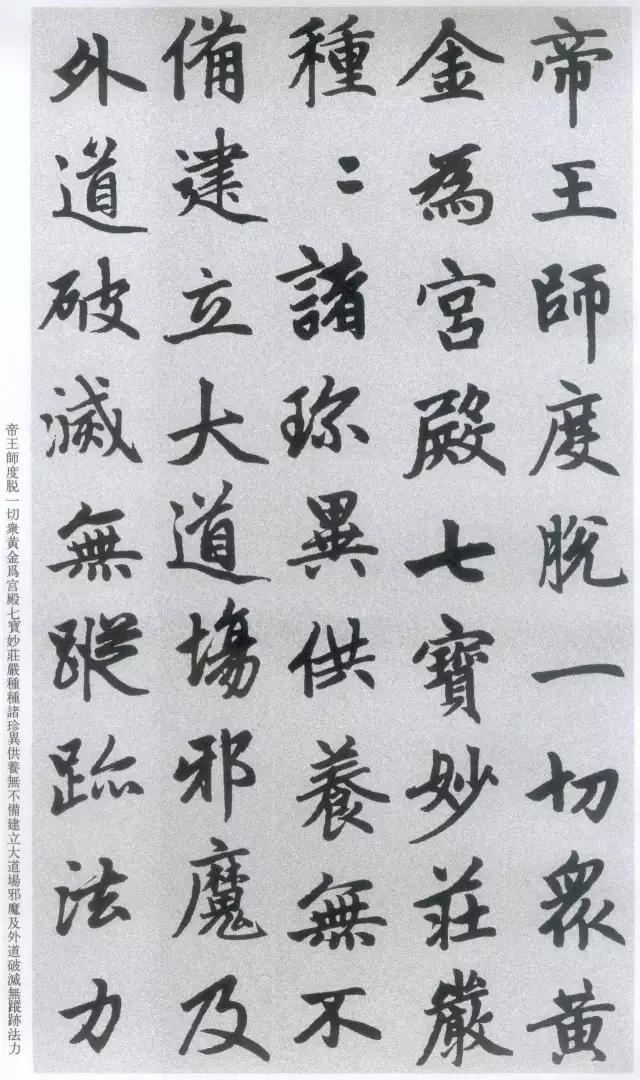 帝王師度脱一切衆黄
金為宮殿七寶妙莊嚴
種〻諸珎異供養無不
備建立大道場邪魔及
外道破滅無蹤跡法力
帝王師度脱一切衆黄金爲宫殿七寶妙莊嚴種種諸珍異供養無不備建立大道場邪魔及外道破滅無蹤跡法力